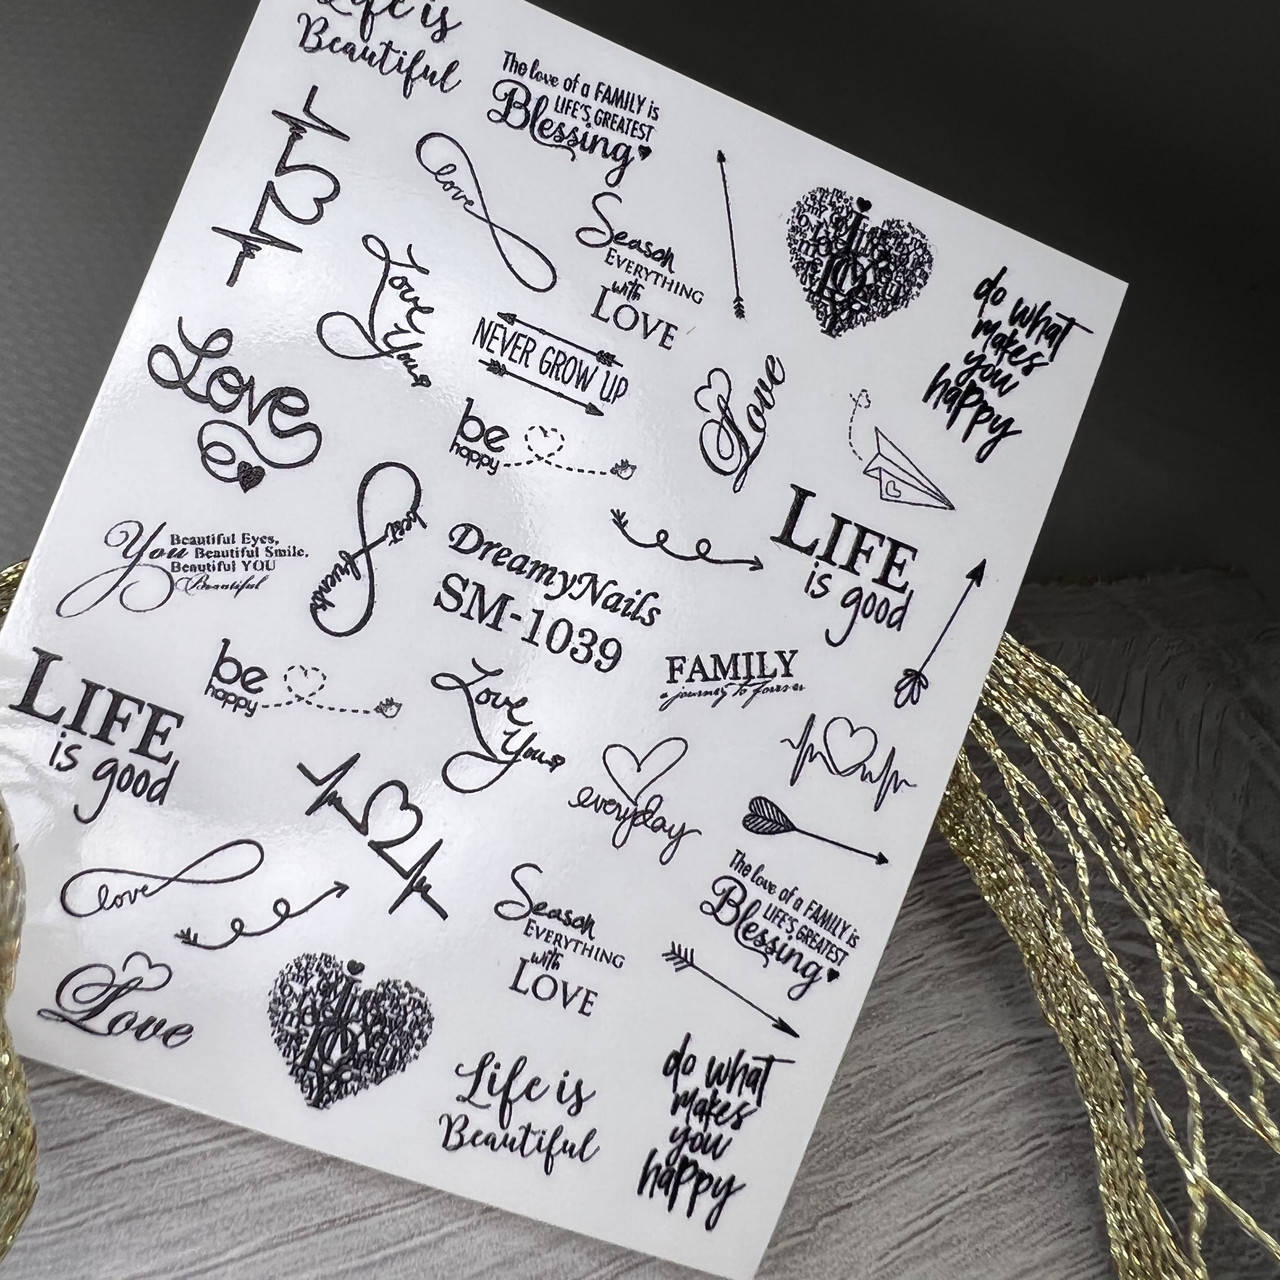 Life is
Beautiful
The love of a FAMILY is
LIFE'S GREATEST
Blessing
love
Season
EVERYTHING
with
LOVE
do what
makes
you
happy
Love
You
NEVER GROW UP
Love
Love
be
happy
LIFE
is good
Beautiful Eyes,
You Beautiful Smile,
Beautiful YOU
Beautiful
best friends
DreamyNails
SM-1039
FAMILY
a journey to forever
be
happy
LIFE
is good
Love
You
everyday
love
The love of a FAMILY is
LIFE'S GREATEST
Blessing
Season
EVERYTHING
with
LOVE
Love
Life is
Beautiful
do what
makes
you
happy